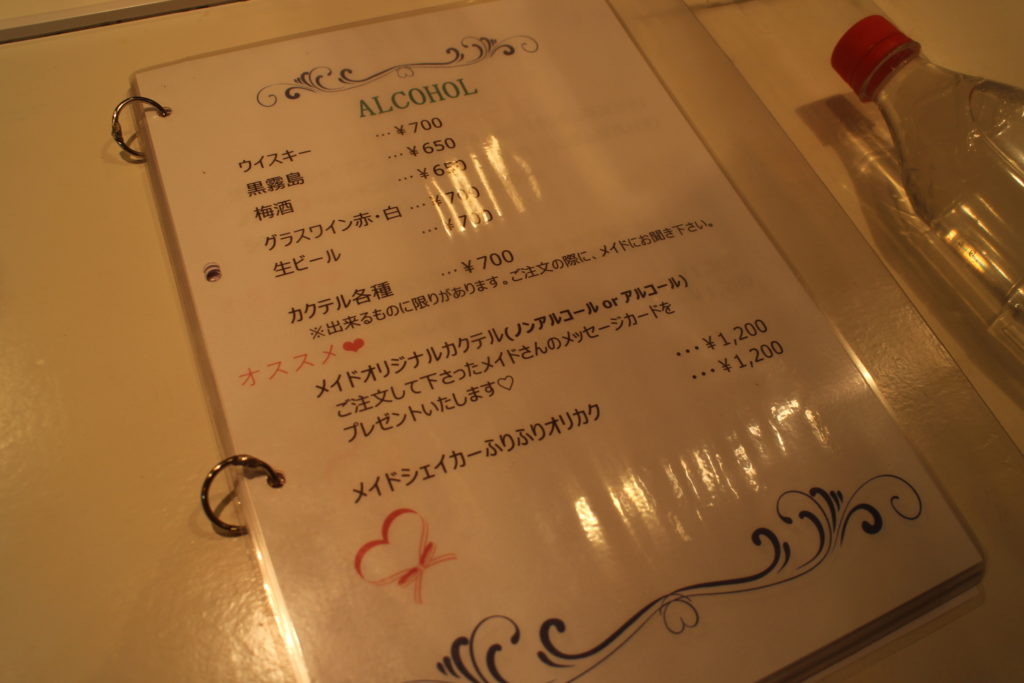 ALCOHOL
ウイスキー …￥700
黒霧島 …￥650
梅酒 …￥650
グラスワイン赤・白 …￥700
生ビール …￥700
カクテル各種 …￥700
※出来るものに限りがあります。ご注文の際に、メイドにお聞き下さい。
オススメ❤
メイドオリジナルカクテル(ノンアルコール or アルコール) …￥1,200
ご注文して下さったメイドさんのメッセージカードを
プレゼントいたします♡
メイドシェイカーふりふりオリカク …￥1,200